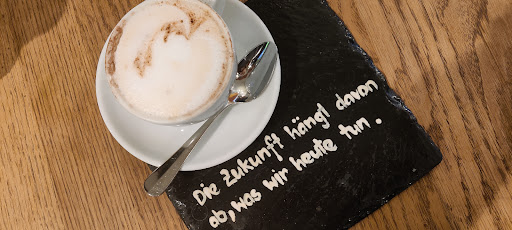 Die Zukunft hängt davon
ab, was wir heute tun.